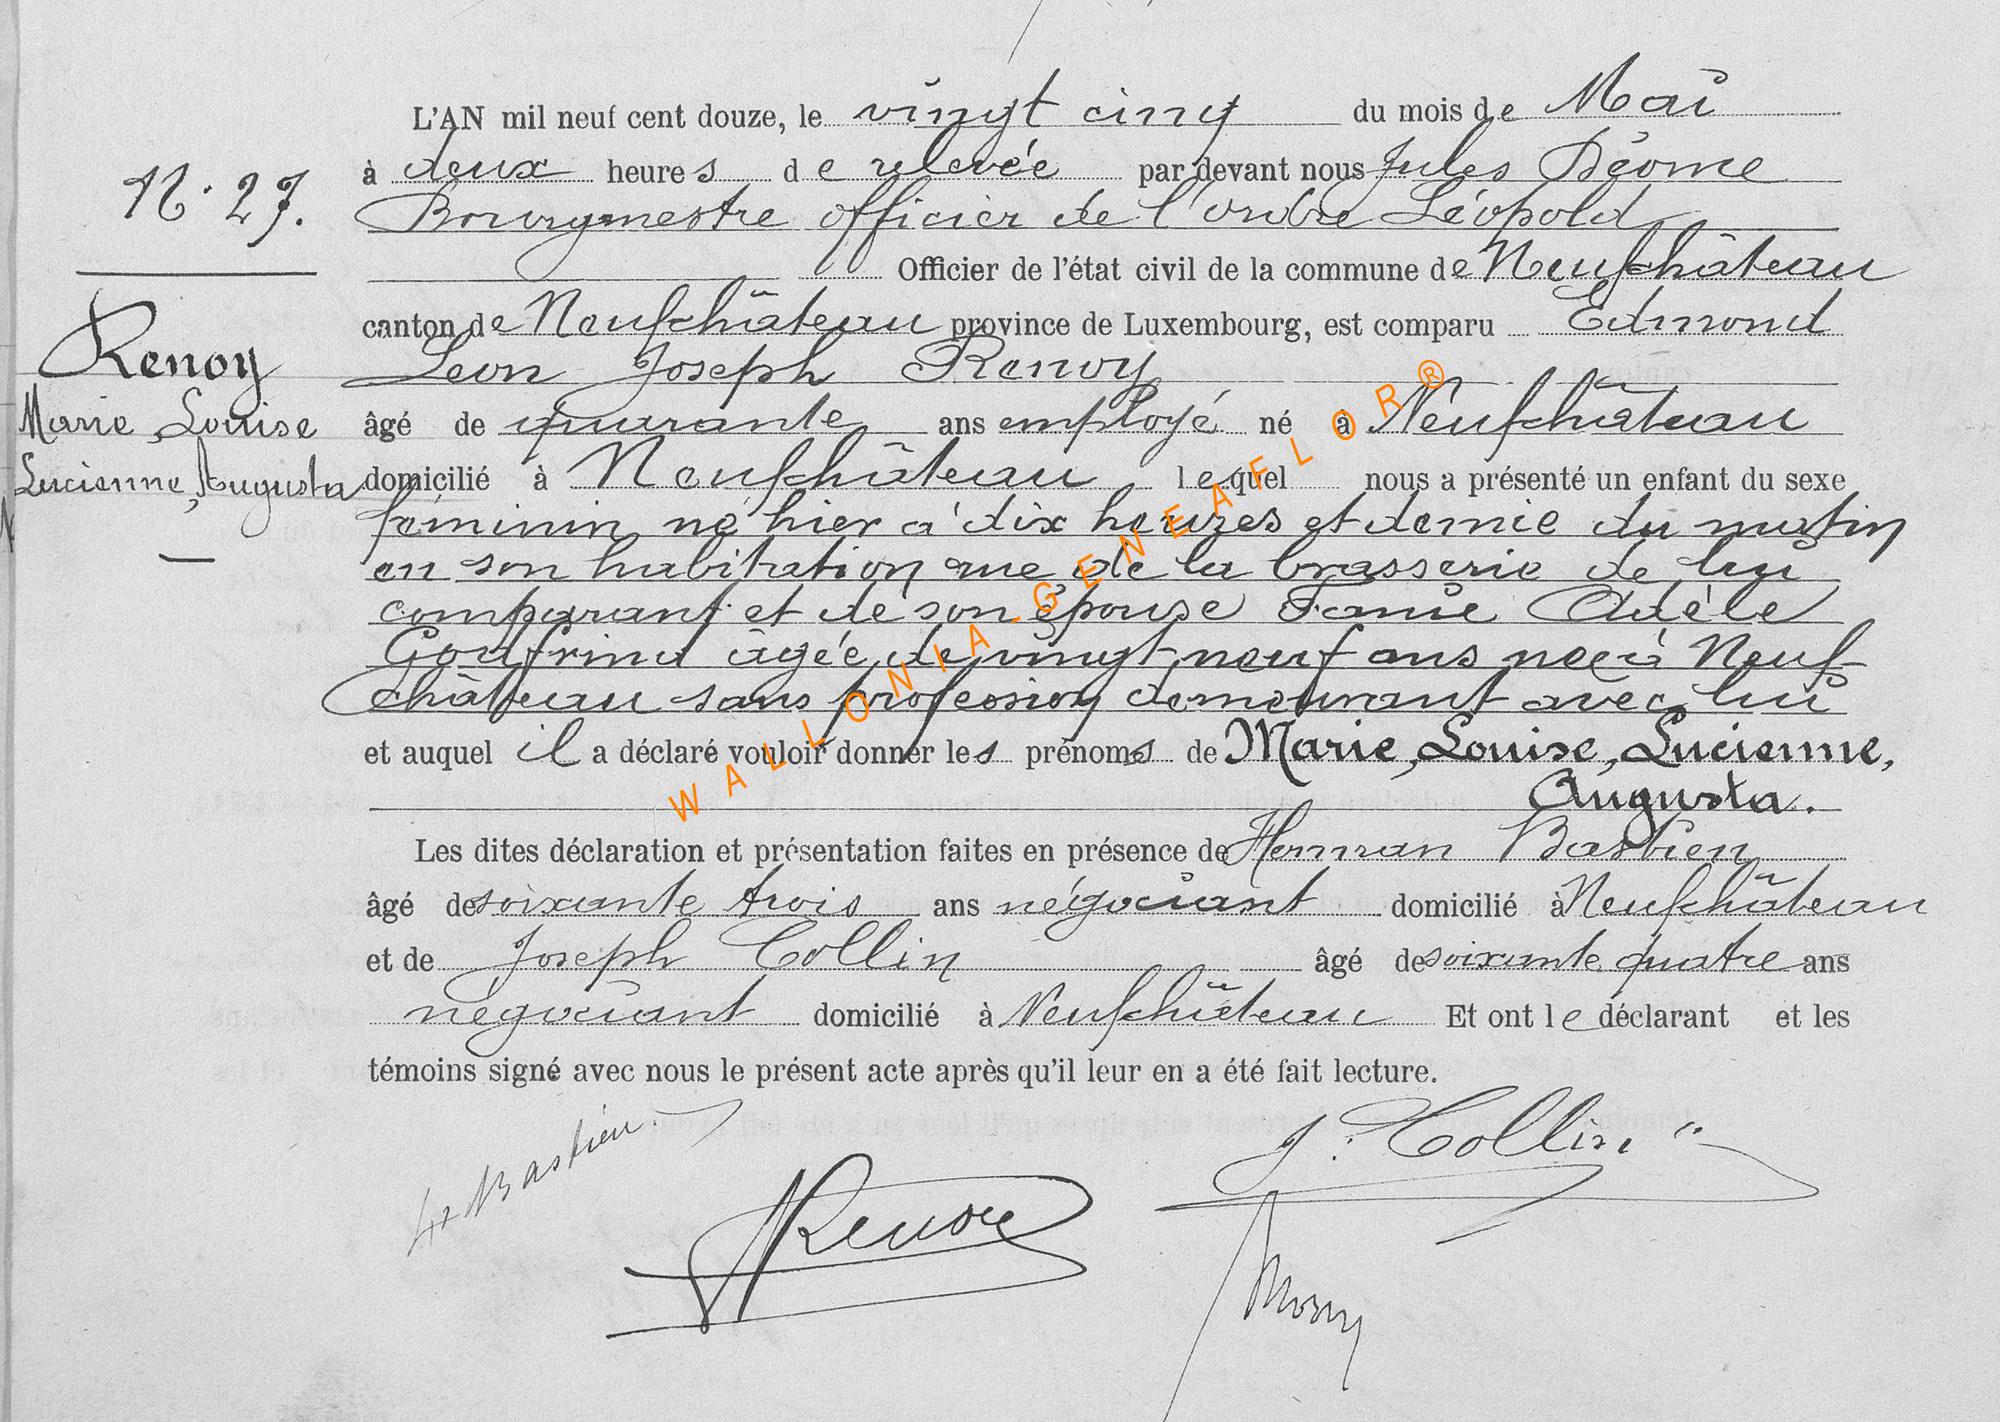 L'AN mil neuf cent douze, le vingt cinq du mois de Mai
N. 27.
à deux heures de relevée par devant nous Jules
Bourgmestre officier de l'ordre Léopold
Officier de l'état civil de la commune de Neufchâteau
canton de Neufchâteau province de Luxembourg, est comparu Edmond
Renoy
Leon Joseph Renoy
Marie, Louise
âgé de quarante ans employé né à Neufchâteau
Lucienne, Augusta
domicilié à Neufchâteau lequel nous a présenté un enfant du sexe
féminin né hier à dix heures et demie du matin
en son habitation rue de la brasserie de lui
comparant et de son épouse Fanie Adèle
âgée de vingt neuf ans née à Neuf-
château sans profession demeurant avec lui
et auquel il a déclaré vouloir donner les prénoms de Marie, Louise, Lucienne,
Augusta.
Les dites déclaration et présentation faites en présence de Herman Bastien
âgé de soixante trois ans négociant domicilié à Neufchâteau
et de Joseph Collin âgé de soixante quatre ans
négociant domicilié à Neufchâteau Et ont le déclarant et les
témoins signé avec nous le présent acte après qu'il leur en a été fait lecture.
Bastien
J. Collin
Renoy
WALLONIA-GENEAFLOR®